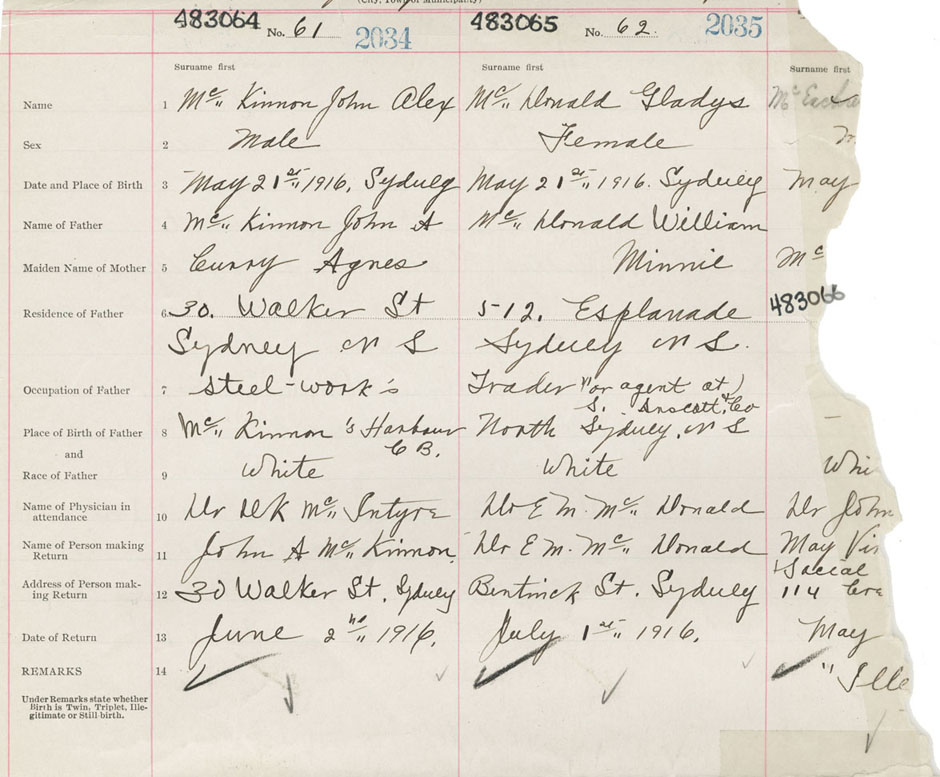 (City, Town or Municipality)
483064 No. 61 2034 483065 No. 62 2035
Surname first Surname first Surname first
Name 1 Mc Kinnon John Alex Mc Donald Gladys Mc
Sex 2 Male Female
Date and Place of Birth 3 May 21st 1916, Sydney May 21st 1916. Sydney May
Name of Father 4 Mc Kinnon John A Mc Donald William
Maiden Name of Mother 5 Curry Agnes Minnie Mc
Residence of Father 6 30. Walker St 5-12. Esplanade 483066
Sydney N S Sydney N S.
Occupation of Father 7 Steel-work's Trader "or agent at)
S. & Co
Place of Birth of Father 8 Mc Kinnon's Harbour North Sydney, N S
and C B.
Race of Father 9 White White Whi
Name of Physician in
attendance 10 Dr D K Mc Intyre Dr E M. Mc Donald Dr John
Name of Person making
Return 11 John A Mc Kinnon Dr E M. Mc Donald May Vin
Social
Address of Person mak-
ing Return 12 30 Walker St. Sydney Bentinck St. Sydney 114
Date of Return 13 June 2nd 1916. July 1st 1916. May
REMARKS 14 "Ille
Under Remarks state whether
Birth is Twin, Triplet, Ille-
gitimate or Still-birth.